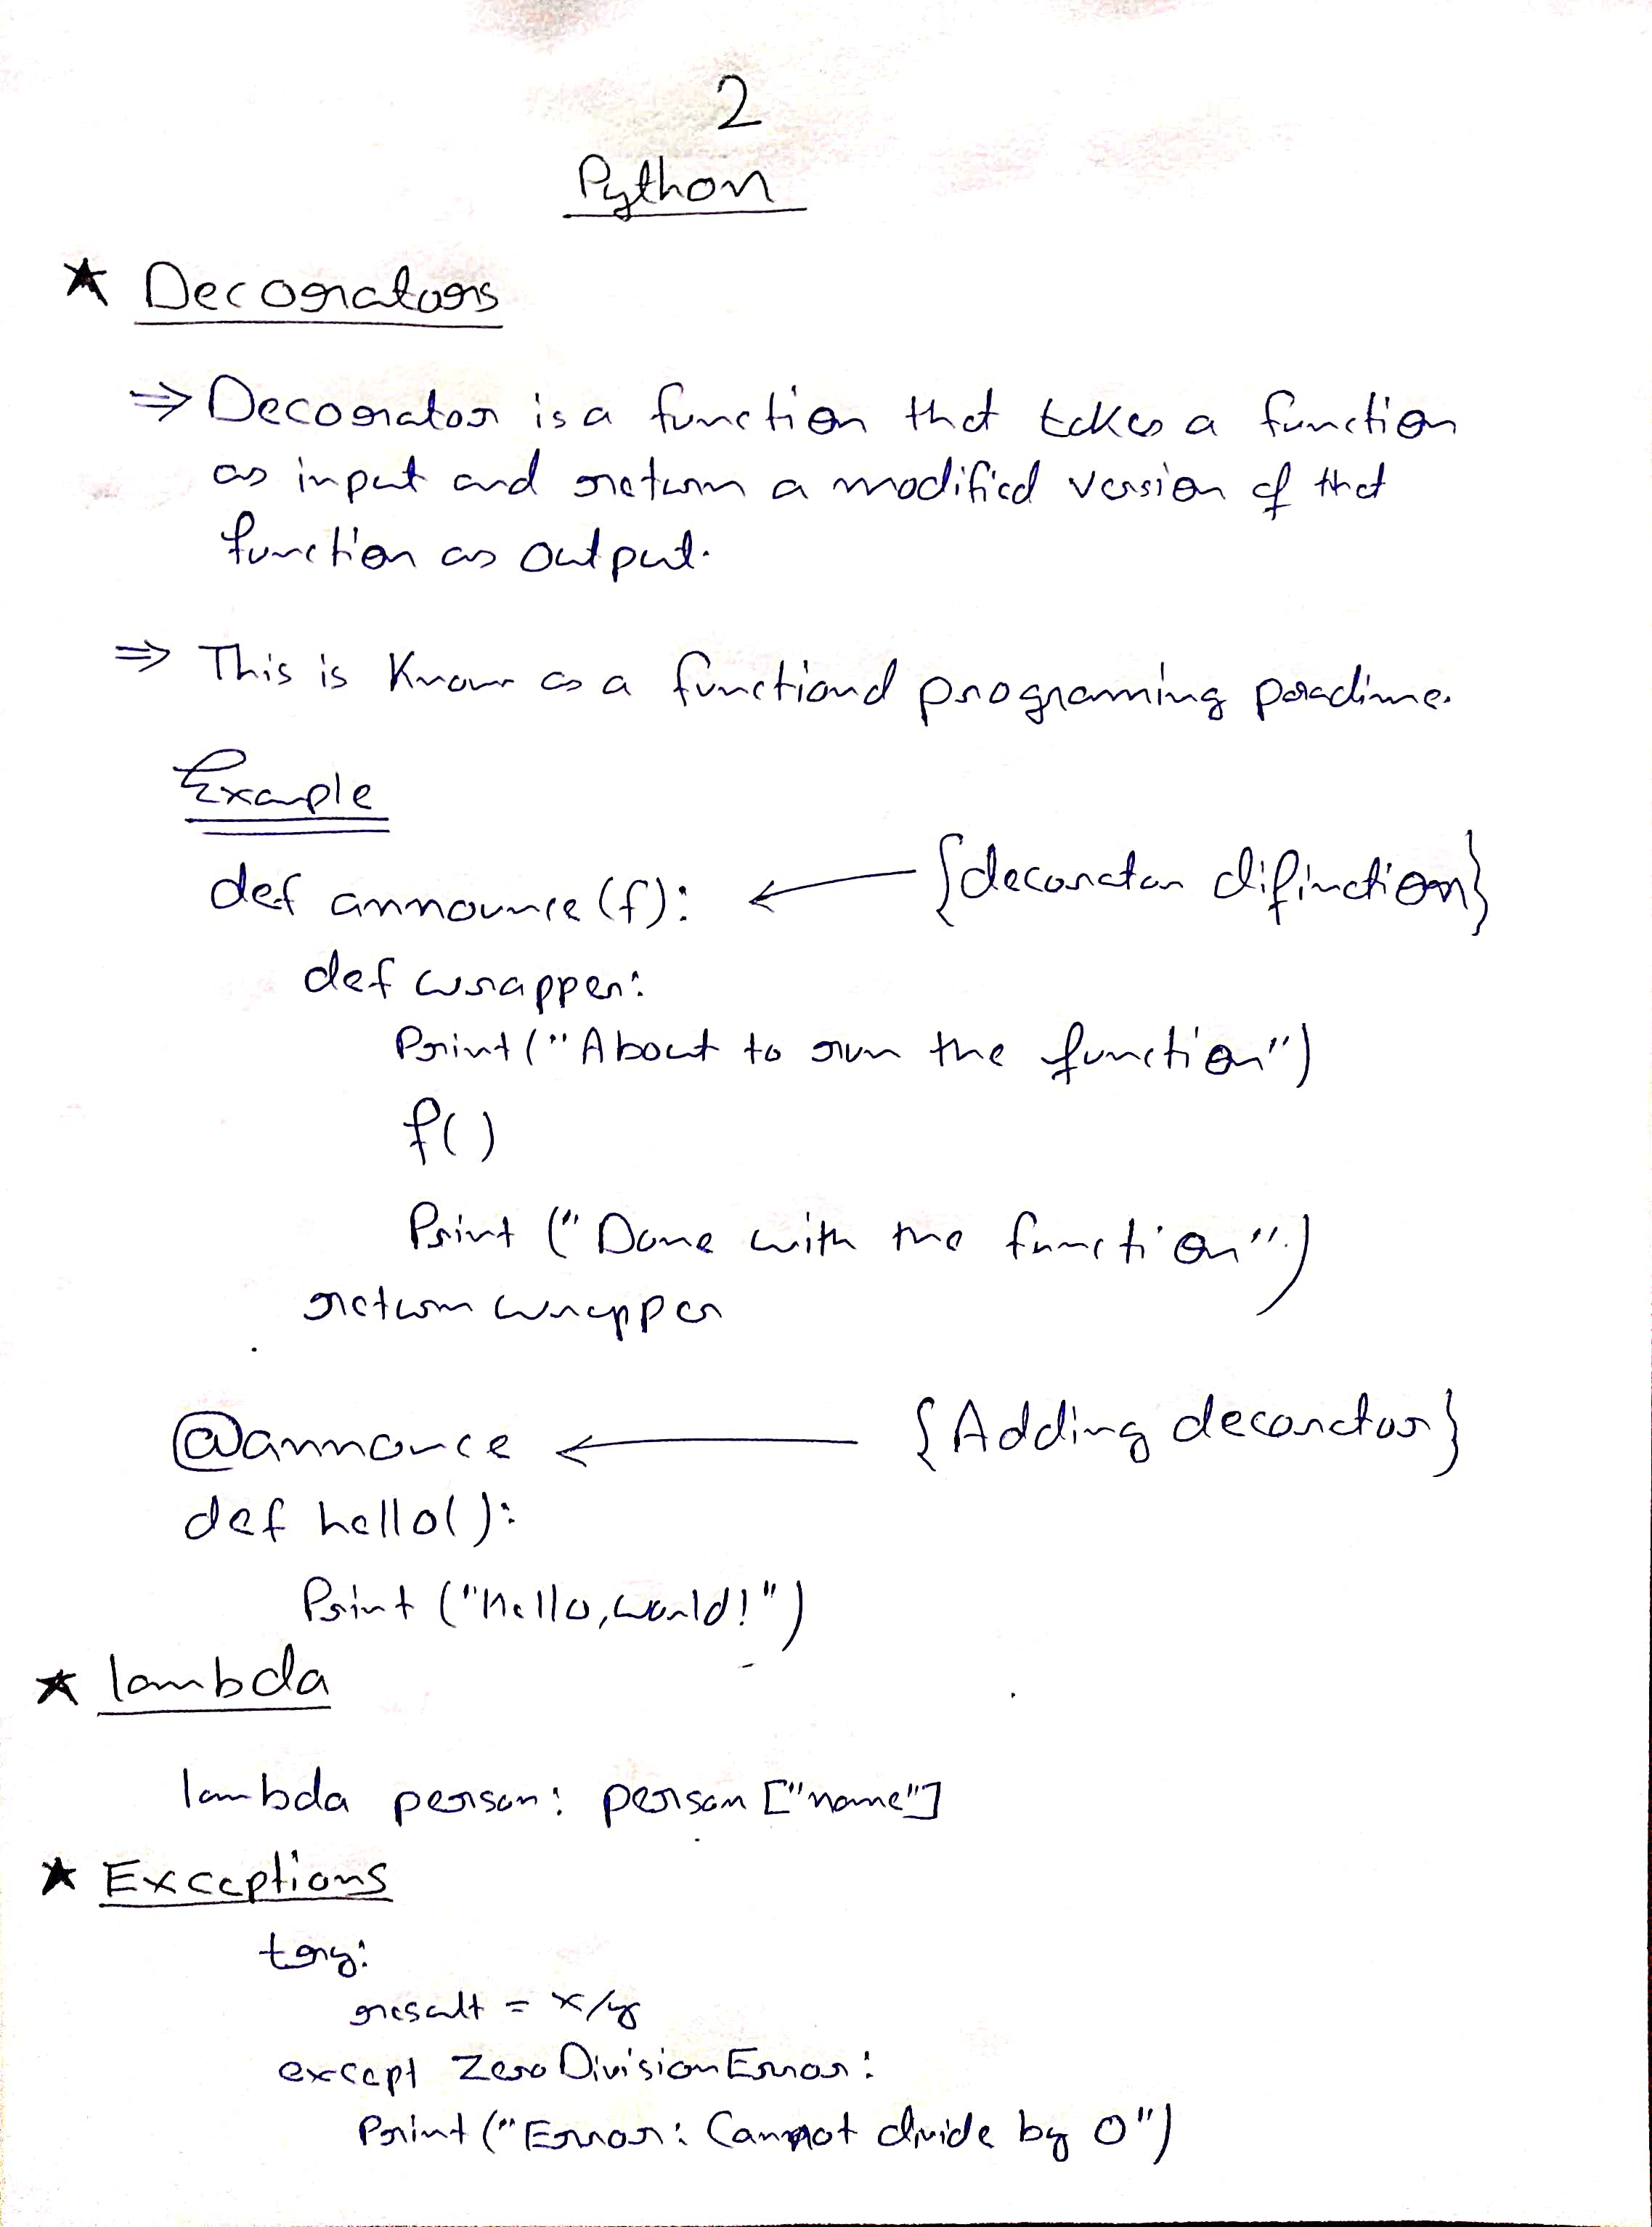 2
Python
★ Decorators
⇒ Decorator is a function that takes a function
as input and return a modified version of that
function as output.
⇒ This is Known as a functional programing paradime.
Example
def announce(f): ← {decorator difinction}
def wrapper:
Print("About to run the function")
f()
Print ("Done with the function")
return wrapper
@annonce ← {Adding decorator}
def hello():
Print ("Hello, world!")
★ lambda
lambda person: person ["name"]
★ Exceptions
try:
result = x/y
except ZeroDivisionError:
Print("Error: Cannot divide by 0")